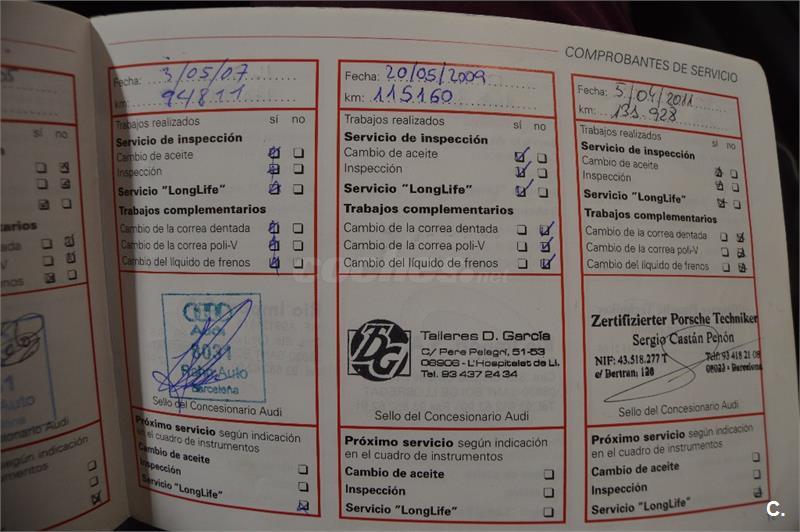 COMPROBANTES DE SERVICIO
Fecha: 3/05/07
km: 94811
Trabajos realizados sí no
Servicio de inspección
Cambio de aceite
Inspección
Servicio "LongLife"
Trabajos complementarios
Cambio de la correa dentada
Cambio de la correa poli-V
Cambio del líquido de frenos
Audi
8031
Auto
Barcelona
Sello del Concesionario Audi
Próximo servicio según indicación
en el cuadro de instrumentos
Cambio de aceite
Inspección
Servicio "LongLife"
Fecha: 20/05/2009
km: 115160
Trabajos realizados sí no
Servicio de inspección
Cambio de aceite
Inspección
Servicio "LongLife"
Trabajos complementarios
Cambio de la correa dentada
Cambio de la correa poli-V
Cambio del líquido de frenos
TDG
Talleres D. García
C/ Pere Pelegrí, 51-53
08906 - L'Hospitalet de Ll.
Tel. 93 437 24 34
Sello del Concesionario Audi
Próximo servicio según indicación
en el cuadro de instrumentos
Cambio de aceite
Inspección
Servicio "LongLife"
Fecha: 5/04/2011
km: 131.928
Trabajos realizados sí no
Servicio de inspección
Cambio de aceite
Inspección
Servicio "LongLife"
Trabajos complementarios
Cambio de la correa dentada
Cambio de la correa poli-V
Cambio del líquido de frenos
Zertifizierter Porsche Techniker
Sergio Castán Penón
NIF: 43.518.277 T Telf: 93 418 21 08
c/ Bertran: 128 08023 - Barcelona
Sello del Concesionario Audi
Próximo servicio según indicación
en el cuadro de instrumentos
Cambio de aceite
Inspección
Servicio "LongLife"
coches.net
C.